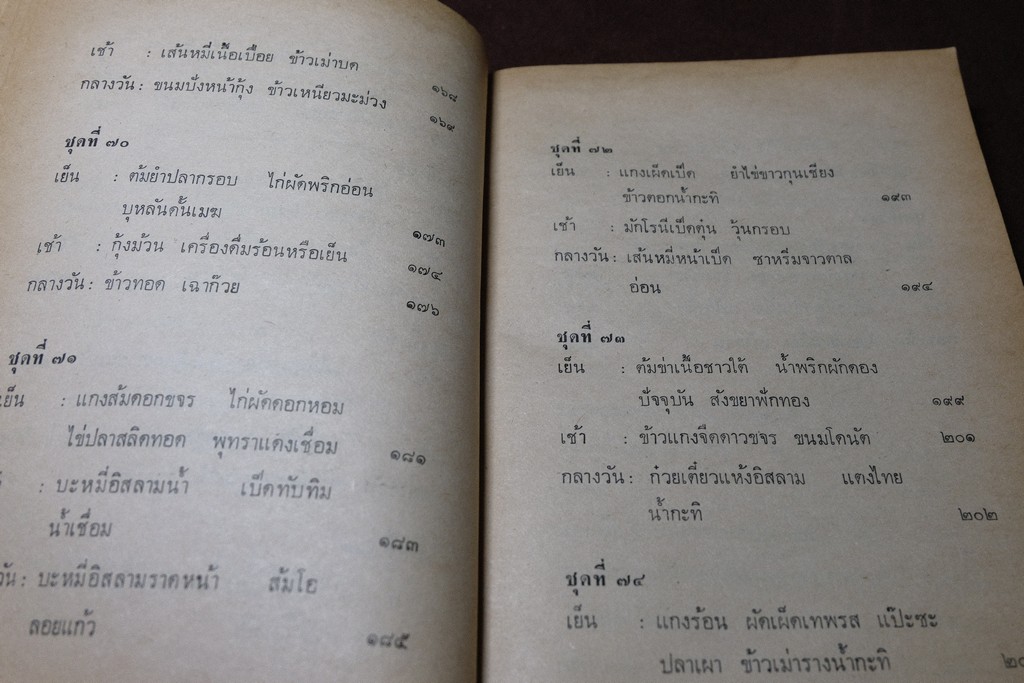 เช้า : เส้นหมี่เนื้อเปื่อย ข้าวเม่าบด ๑๖๘
กลางวัน : ขนมปังหน้ากุ้ง ข้าวเหนียวมะม่วง ๑๖๙
ชุดที่ ๗๐
เย็น : ต้มยำปลากรอบ ไก่ผัดพริกอ่อน
บุหลันดั้นเมฆ ๑๗๓
เช้า : กุ้งม้วน เครื่องดื่มร้อนหรือเย็น ๑๗๔
กลางวัน : ข้าวทอด เฉาก๊วย ๑๗๖
ชุดที่ ๗๑
เย็น : แกงส้มดอกขจร ไก่ผัดดอกหอม
ไข่ปลาสลิดทอด พุทราแดงเชื่อม ๑๘๑
: บะหมี่อิสลามน้ำ เป็ดทับทิม
น้ำเชื่อม ๑๘๓
วัน : บะหมี่อิสลามราดหน้า ส้มโอ
ลอยแก้ว ๑๘๕
ชุดที่ ๗๒
เย็น : แกงเผ็ดเป็ด ยำไข่ขาวกุนเชียง
ข้าวตอกน้ำกะทิ ๑๙๓
เช้า : มักโรนีเป็ดตุ๋น วุ้นกรอบ
กลางวัน : เส้นหมี่หน้าเป็ด ซาหรีมจาวตาล
อ่อน ๑๙๔
ชุดที่ ๗๓
เย็น : ต้มข่าเนื้อชาวใต้ น้ำพริกผักดอง
ปัจจุบัน สังขยาฟักทอง ๑๙๙
เช้า : ข้าวแกงจืดดาวขจร ขนมโดนัต ๒๐๑
กลางวัน : ก๋วยเตี๋ยวแห้งอิสลาม แตงไทย
น้ำกะทิ ๒๐๒
ชุดที่ ๗๔
เย็น : แกงร้อน ผัดเผ็ดเทพรส แป๊ะซะ
ปลาเผา ข้าวเม่ารางน้ำกะทิ